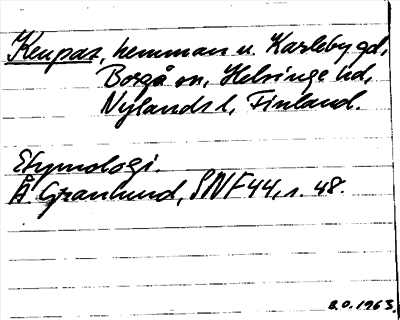 Keupas, hemman u. Karleby gd,
Borgå sn, Helsinge hd,
Nylands l, Finland.
Etymologi.
Å. Granlund, SNF 44, s. 48.
B.O. 1963.